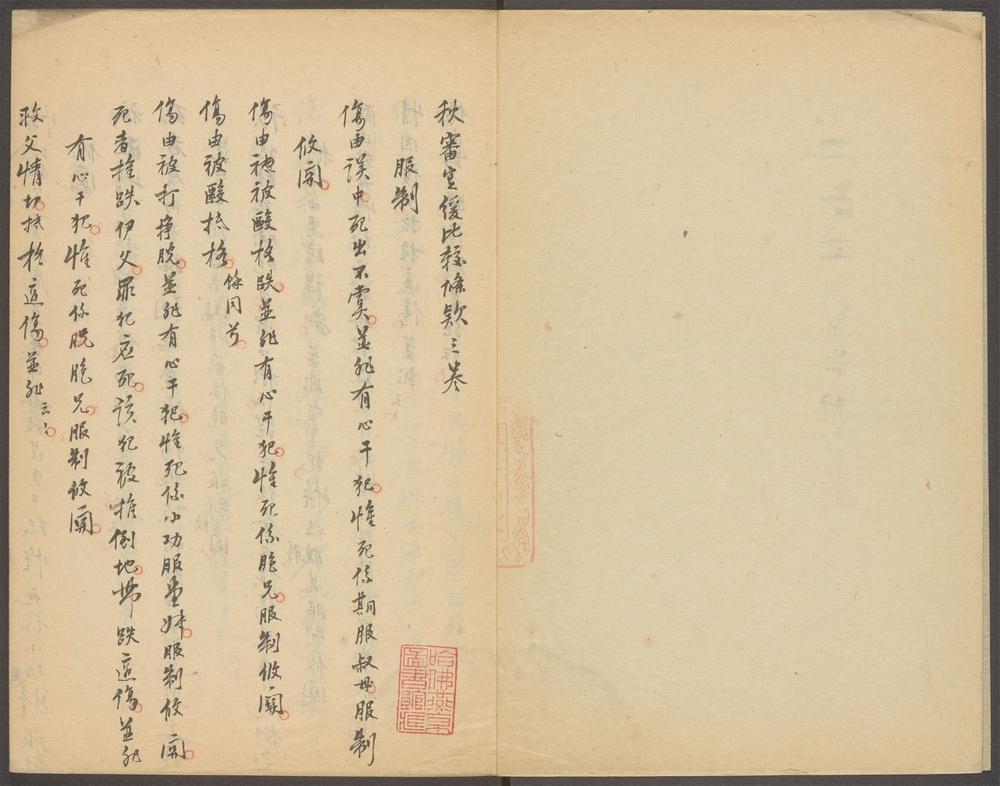 秋審實緩比較條款三卷
服制
傷由誤中死出不虞並非有心干犯惟死係期服叔母服制
攸關
傷由被毆格跌並非有心干犯惟死係胞兄服制攸關
傷由被毆抵格餘同前
傷由被打掙脫並非有心干犯惟死係小功服堂妹服制攸關
死者推跌伊父罪犯應死該犯被推倒地帶跌適傷並非
有心干犯惟死係胞兄服制攸關
救父情切抵格適傷並非云云
哈佛燕京圖書館藏